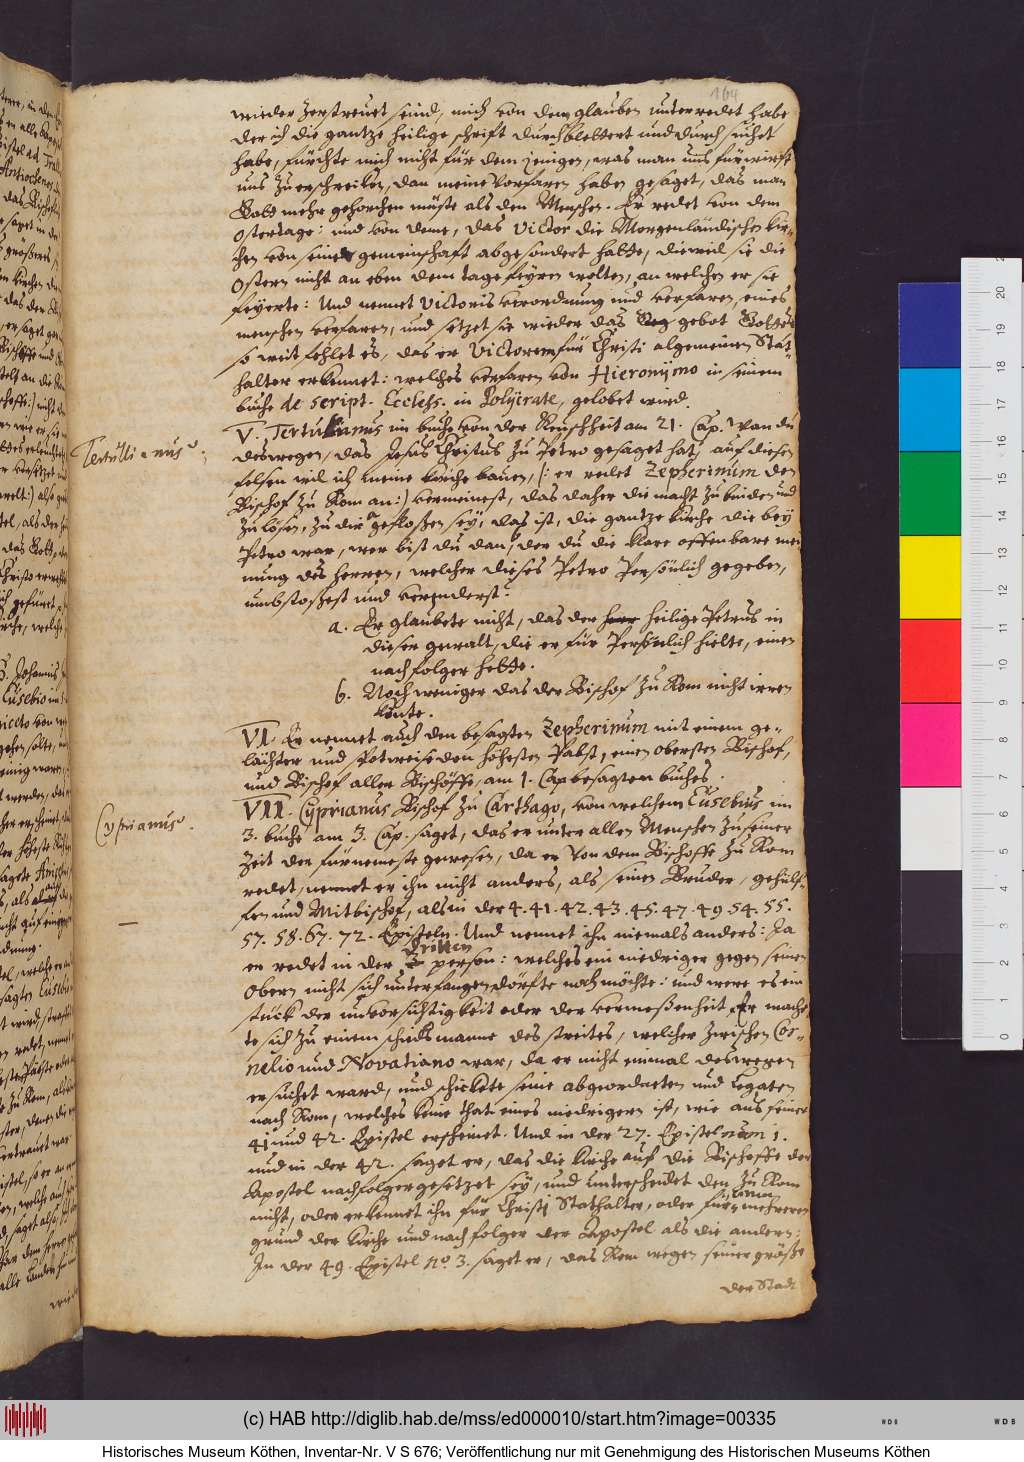 164
wieder zerstreuet seind, mich von dem glauben unterredet habe
der ich die gantze heilige schrifft durchblettert und durch suchet
habe, fürchte mich nicht für dem jenigen, was man uns fürwirft
uns zu erschreiken, dan meine Vorfaren haben gesaget, das man
Gott mehr gehorchen müste als den Menschen. Er redet von dem
Ostertage: und von deme, das Victor die Morgenländischen Kir-
chen von seiner gemeinschaft abgesondert hatte, dieweil sie die
Ostern nicht an eben dem tage feyren wolten, an welchen er sie
feyerte: Und nennet Victoris verordnung und verfaren, eines
menschen verfaren, und setzet sie wieder das gebot Gottes
so weit fehlet es, das er Victorem für Christi algemeinen Stat-
halter erkennet: welches verfaren von Hieronymo in seinem
buche de script. Eccless. in Polycrate, gelobet wird.
Tertullianus.
V. Tertulianus im buche von der Keuschheit am 21. Cap. Wan du
deswegen, das Jesus Christus zu Petro gesaget hat, auf diesen
felsen wil ich meine kirche bauen, (: er redet Zepherinum den
Bischof zu Rom an:) vermeinest, das daher die macht zu binden und
zu lösen, zu dir geflossen sey, das ist, die gantze kirche die bey
Petro war, wer bist du dan, der du die klare offenbare mei
nung des Herren, welcher dieses Petro Persönlich gegeben,
umbstossest und verenderst?
a. Er glaubete nicht, das der heilige Petrus in
dieser gewalt, die er für Persönlich hielte, einen
nachfolger hette.
b. Noch weniger das der Bischof zu Rom nicht irren
könte.
VI. Er nennet auch den besagten Zepherinum mit einem ge-
lächter und spotweise den höhesten Pabst, einen obersten Bischof,
und Bischof aller Bischöffe, am 1. Cap besagten buches.
Cyprianus.
VII. Cyprianus Bischof zu Carthago, von welchem Eusebius im
3. buche am 3. Cap. saget, das er unter allen Menschen zu seiner
Zeit der fürnemeste gewesen, da er von dem Bischoffe zu Rom
redet, nennet er ihn nicht anders, als seinen Bruder, gehülf-
fen und Mitbischof, als in der 4. 41. 42. 43. 45. 47. 49. 54. 55.
57. 58. 67. 72. Episteln. Und nennet ihn niemals anders: Ja
er redet in der dritten person: welches ein niedriger gegen seinen
Obern nicht sich unterfangen dörfte noch möchte: und were es ein
stück der unvorsichtigkeit oder der vermessenheit. Er mache
te sich zu einem schiedsmanne des streites, welcher zwischen Cor-
nelio und Novatiano war, da er nicht einmal deswegen
ersuchet ward, und schickete seine abgeordneten und Legaten
nach Rom, welches keine that eines niedrigern ist, wie aus seiner
41 und 42. Epistel erscheinet. Und in der 27. Epistel num 1.
und in der 42. saget er, das die Kirche auf die Bischoffe der
Apostel nachfolger gesetzet sey, und unterscheidet den zu Rom
nicht, oder erkennet ihn für Christi Stathalter, oder für einen mehreren
grund der Kirche und nachfolger der Apostel als die andern:
In der 49. Epistel no. 3. saget er, das Rom wegen seiner grösse
der Stadt
(c) HAB http://diglib.hab.de/mss/ed000010/start.htm?image=00335
Historisches Museum Köthen, Inventar-Nr. V S 676; Veröffentlichung nur mit Genehmigung des Historischen Museums Köthen